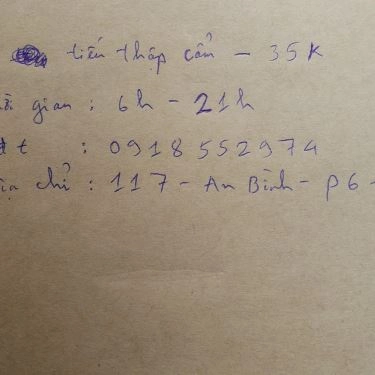 tiến thập cẩm - 35K
gian : 6h - 21h
đt : 0918552974
ịa chỉ : 117 - An Bình - P6 -